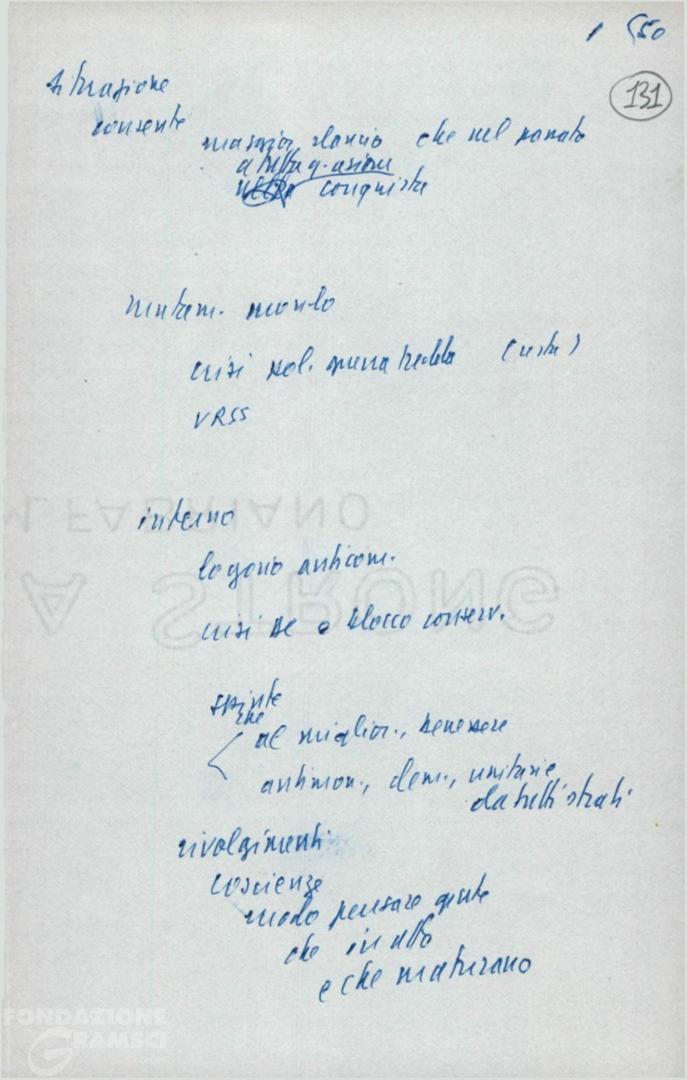 1 (50
131
situazione
consente
maggior slancio che nel passato
a tutta q. azione
conquista
mutam. mondo
crisi pol. guerra fredda (resta)
URSS
interno
logorio anticom.
crisi DC e blocco conserv.
spinte
che
al miglior., benessere
antimon., dem., unitarie,
da tutti strati
rivolgimenti
coscienze
modo pensare gente
che in atto
e che maturano
M. FABRIANO
A STRONG
FONDAZIONE
GRAMSCI